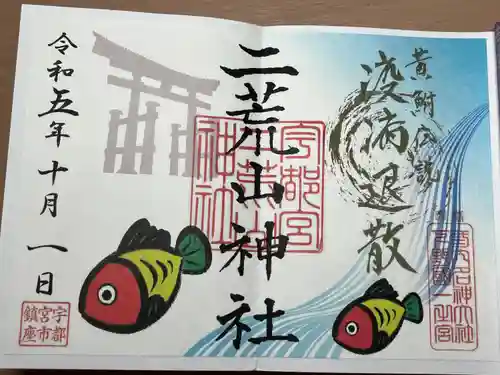 黄鮒伝説
疫病退散
式内名神大社
下野國一之宮
二荒山神社
宇都宮
二荒山
神社
令和五年十月一日
宇都
宮市
鎮座